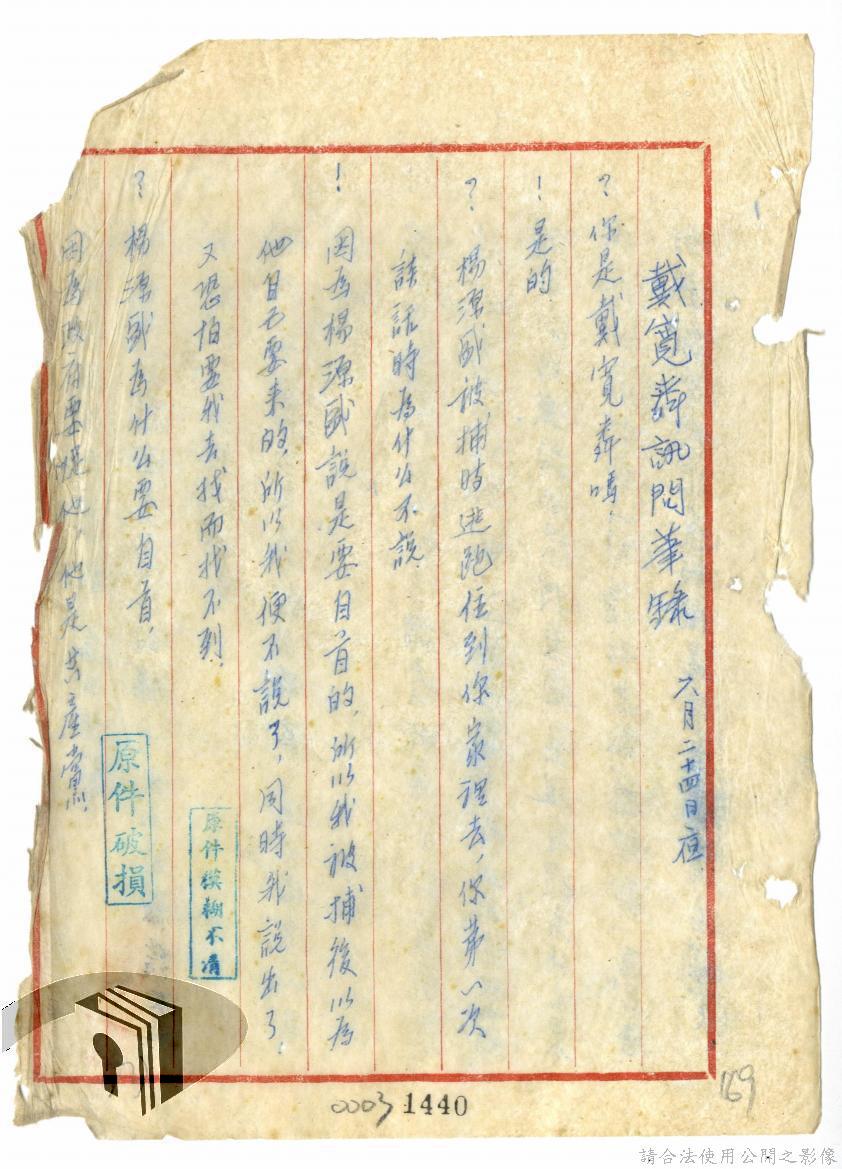 戴寬訊問筆錄
六月二十四日夜
？你是戴寬嗎．
！是的．
？楊源盛被捕時逃跑住到你家理去，你第一次
談話時為什么不說
！因為楊源盛說是要自首的，所以我被捕後以為
他自己要來的，所以我便不說了，同時我說出了，
又恐怕要我去找而找不到．
？楊源盛為什么要自首，
因為政府要捉他，他是共產黨．
原件模糊不清
原件破損
0003 1440
169
請合法使用公開之影像